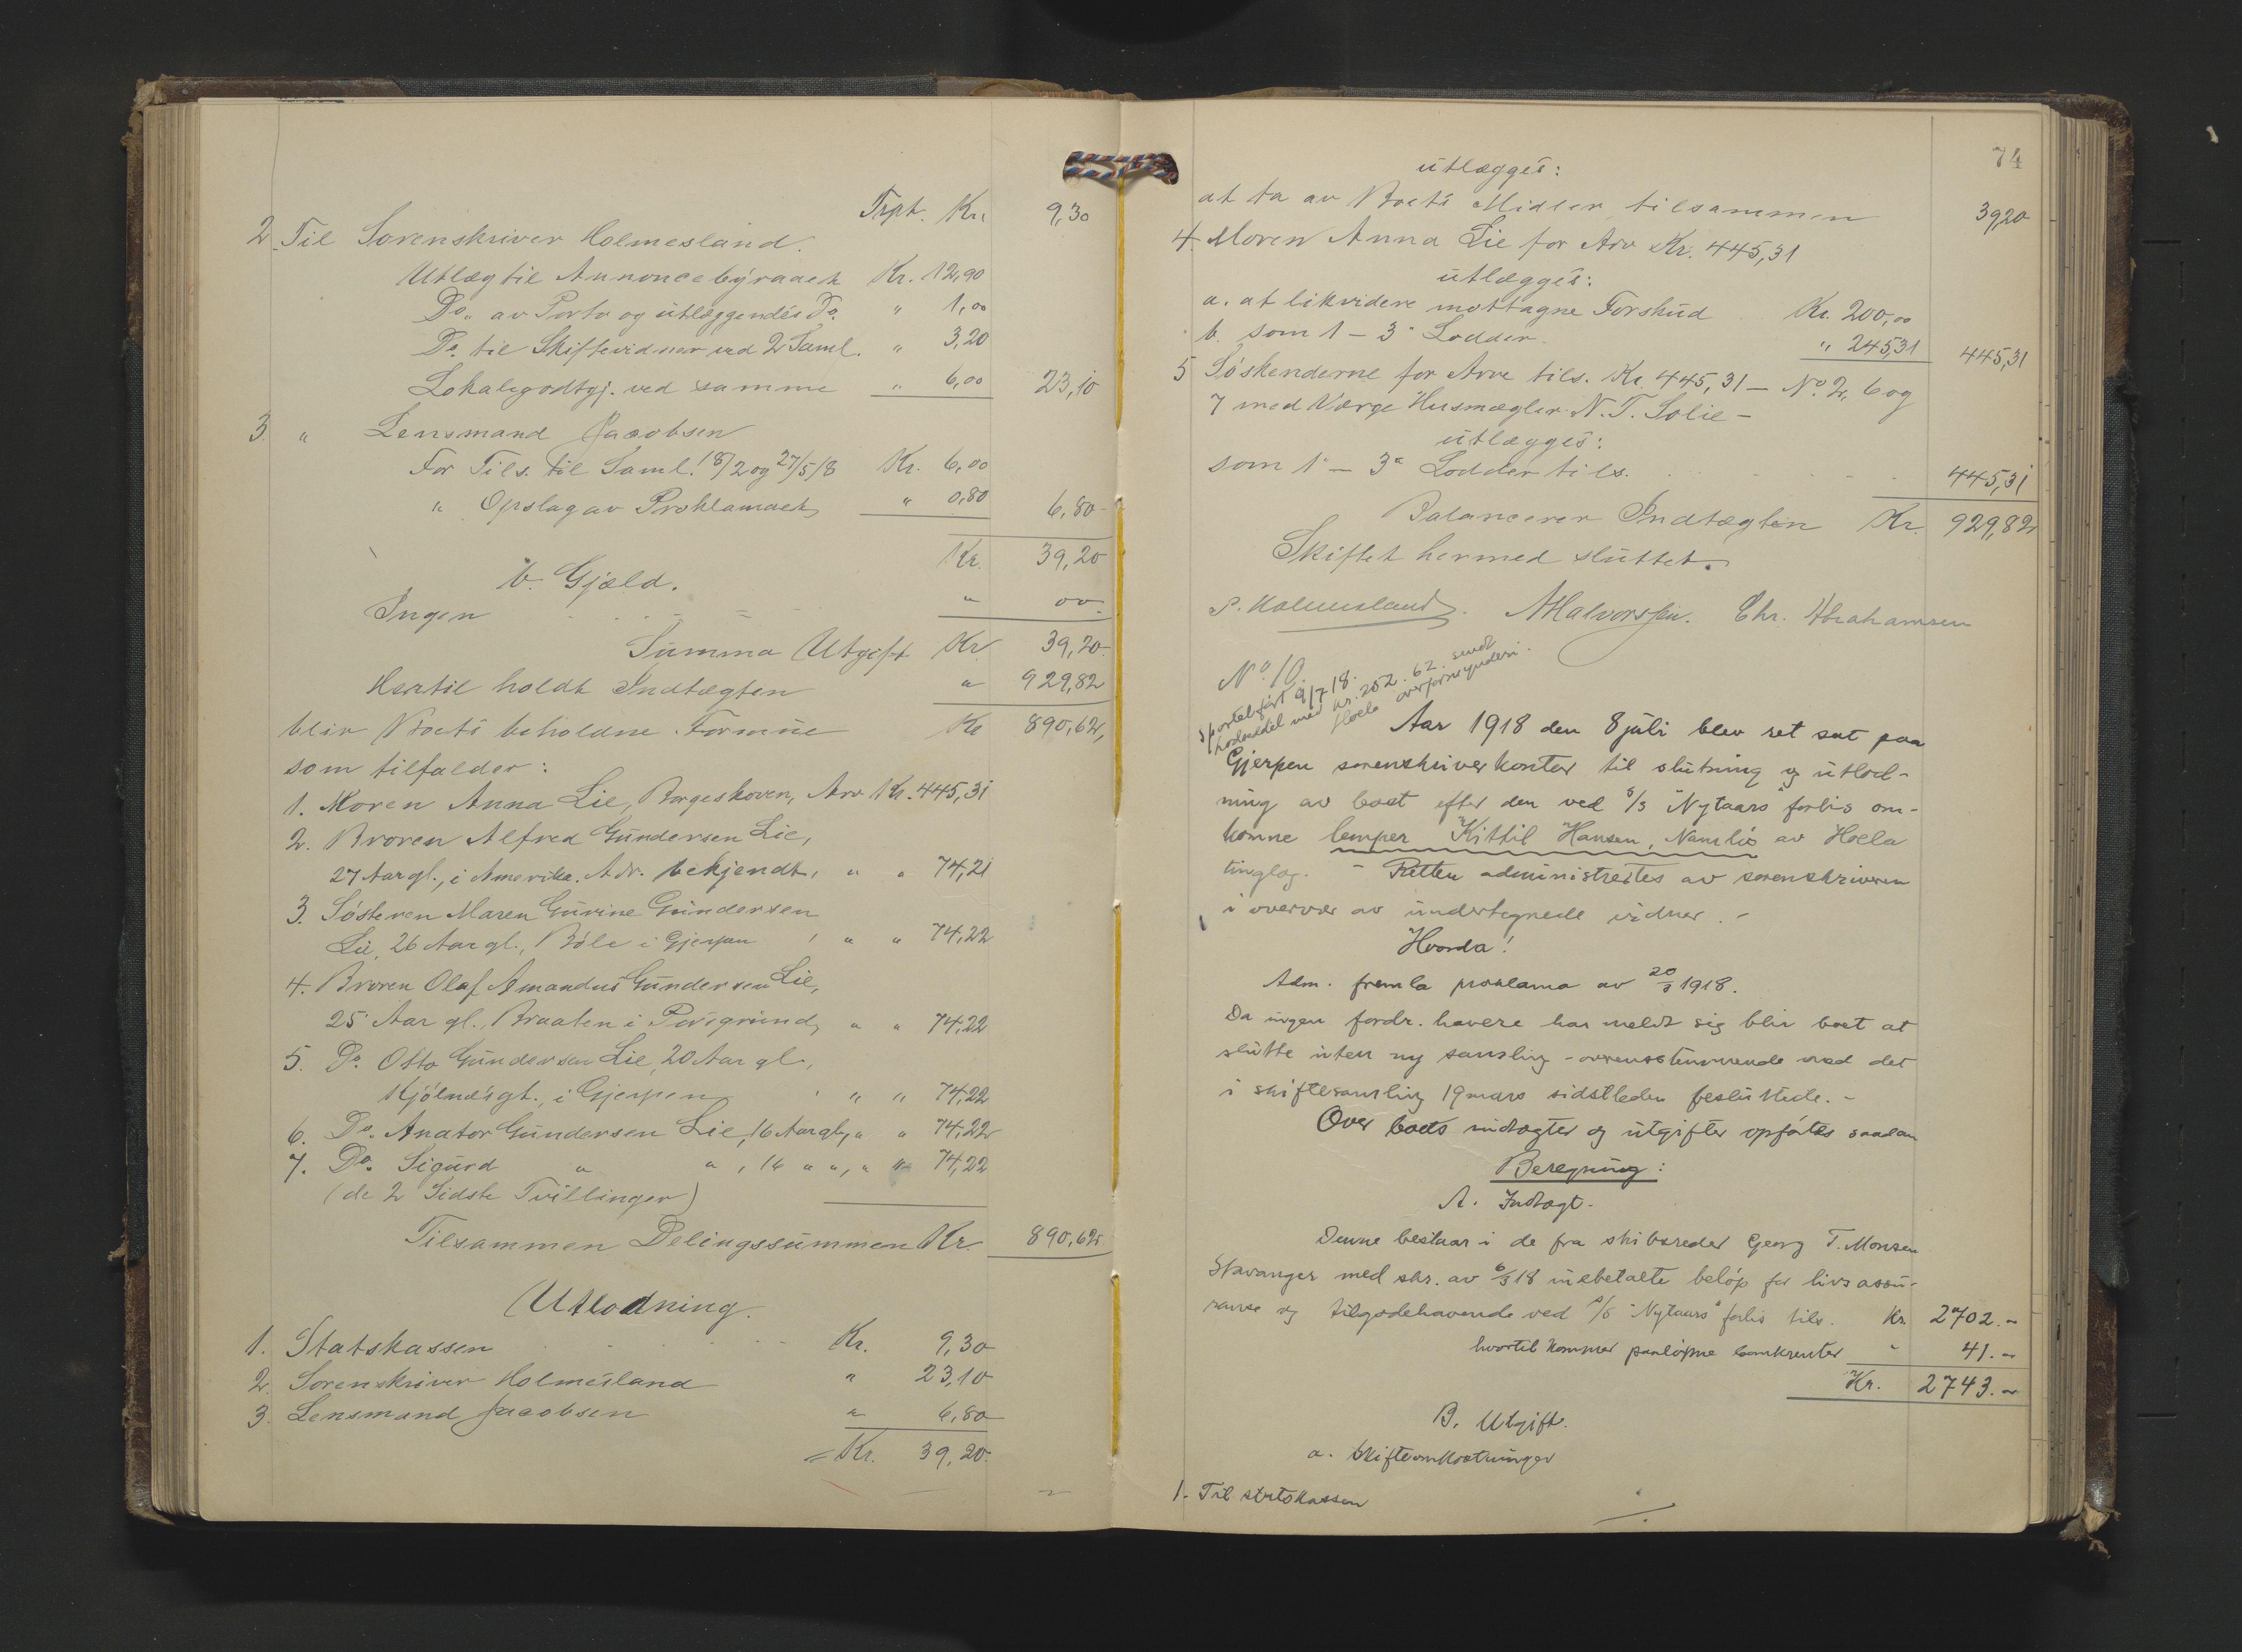 Trpt. Kr. 9,30
2. Til Sorenskriver Holmesland.
Utlæg til Annoncebyraaet Kr. 12,90
Do. av Porto og utlæggendes Do. " 1,00
Do. til Skiftevidner ved 2 Saml. " 3,20
Lokalegodtgj. ved samme " 6,00 23,10
3. " Lensmand Jacobsen
For Tils. til Saml. 18/2 og 27/5 18 Kr. 6,00
" Opslag av Proklamaet " 0,80 6,80
Kr. 39,20
b. Gjæld.
Ingen " 00
Summa Utgift Kr 39,20
Hertil holdt Indtægten " 929,82
blir Boets beholdne Formue Kr 890,62,
som tilfalder:
1. Moren Anna Lie, Borgeskoven, Arv Kr. 445,31
2. Broren Alfred Gundersen Lie,
27 Aar gl., i Amerika. Adr. bekjendt, " " 74,21
3. Søsteren Maren Gurine Gundersen
Lie, 26 Aar gl., Böle i Gjerpen, " " 74,22
4. Broren Olaf Amandus Gundersen Lie,
25 Aar gl., Braaten i Porsgrund, " " 74,22
5. Do. Otto Gundersen Lie, 20 Aar gl.,
Kjölnesgt., i Gjerpen, " " 74,22
6. Do. Anator Gundersen Lie, 16 Aar gl., " " 74,22
7. Do. Sigurd " " , 16 " ", " " 74,22
(de 2 Sidste Tvillinger)
Tilsammen Delingssummen Kr. 890,62
Utlodning.
1. Statskassen Kr. 9,30
2. Sorenskriver Holmesland " 23,10
3. Lensmand Jacobsen " 6,80
= Kr. 39,20
74
utlægges:
at ta av Boets Midler tilsammen 39,20
4. Moren Anna Lie for Arv Kr. 445,31
utlægges:
a. at likvidere mottagne Forskud Kr. 200,00
b. som 1 - 3 Lodder. " 245,31 445,31
5 Söskenderne for Arve tils. Kr. 445,31 - No. 2, 6 og
7 med Værge Husmægler N. T. Solie -
utlægges:
som 1 - 3 Lodder tils. 445,31
Balancerer Indtægten Kr. 929,82
Skiftet hermed sluttet.
P. Holmesland. A Halvorsen. Chr. Abrahamsen
No. 10.
Sportelført 9/7 18.
hovedddel med kr. 252.62. sendt
Hoela overformynderi.
Aar 1918 den 8 juli blev ret sat paa
Gjerpen sorenskriverkontor til slutning og utlod-
ning av boet efter den ved S/S "Nytaars" forlis om-
komne lemper Kittil Hansen, Namlös av Hoela
tinglag. - Retten administrertes av sorenskriveren
i overvær av undertegnede vidner. -
Hvorda!
Adm. fremla proklama av 20/3 1918.
Da ingen fordr. havere har meldt sig blir boet at
slutte uten ny samling - overensstemmende med det
i skiftesamling 19 mars sidstleden besluttede. -
Over boets indtægter og utgifter opførtes saadan
Beregning:
A. Indtægt.
Denne bestaar i de fra skibsreder Georg T. Monsen
Stavanger med skr. av 6/3 18 inebetalte beløp for livsassu-
ranse og tilgodehavende ved S/S "Nytaars" forlis tils. Kr. 2702.-
hvortil kommer paaløpne bankrenter " 41.-
Kr. 2743.-
B. Utgift.
a. Skifteomkostninger
1. Til statskassen